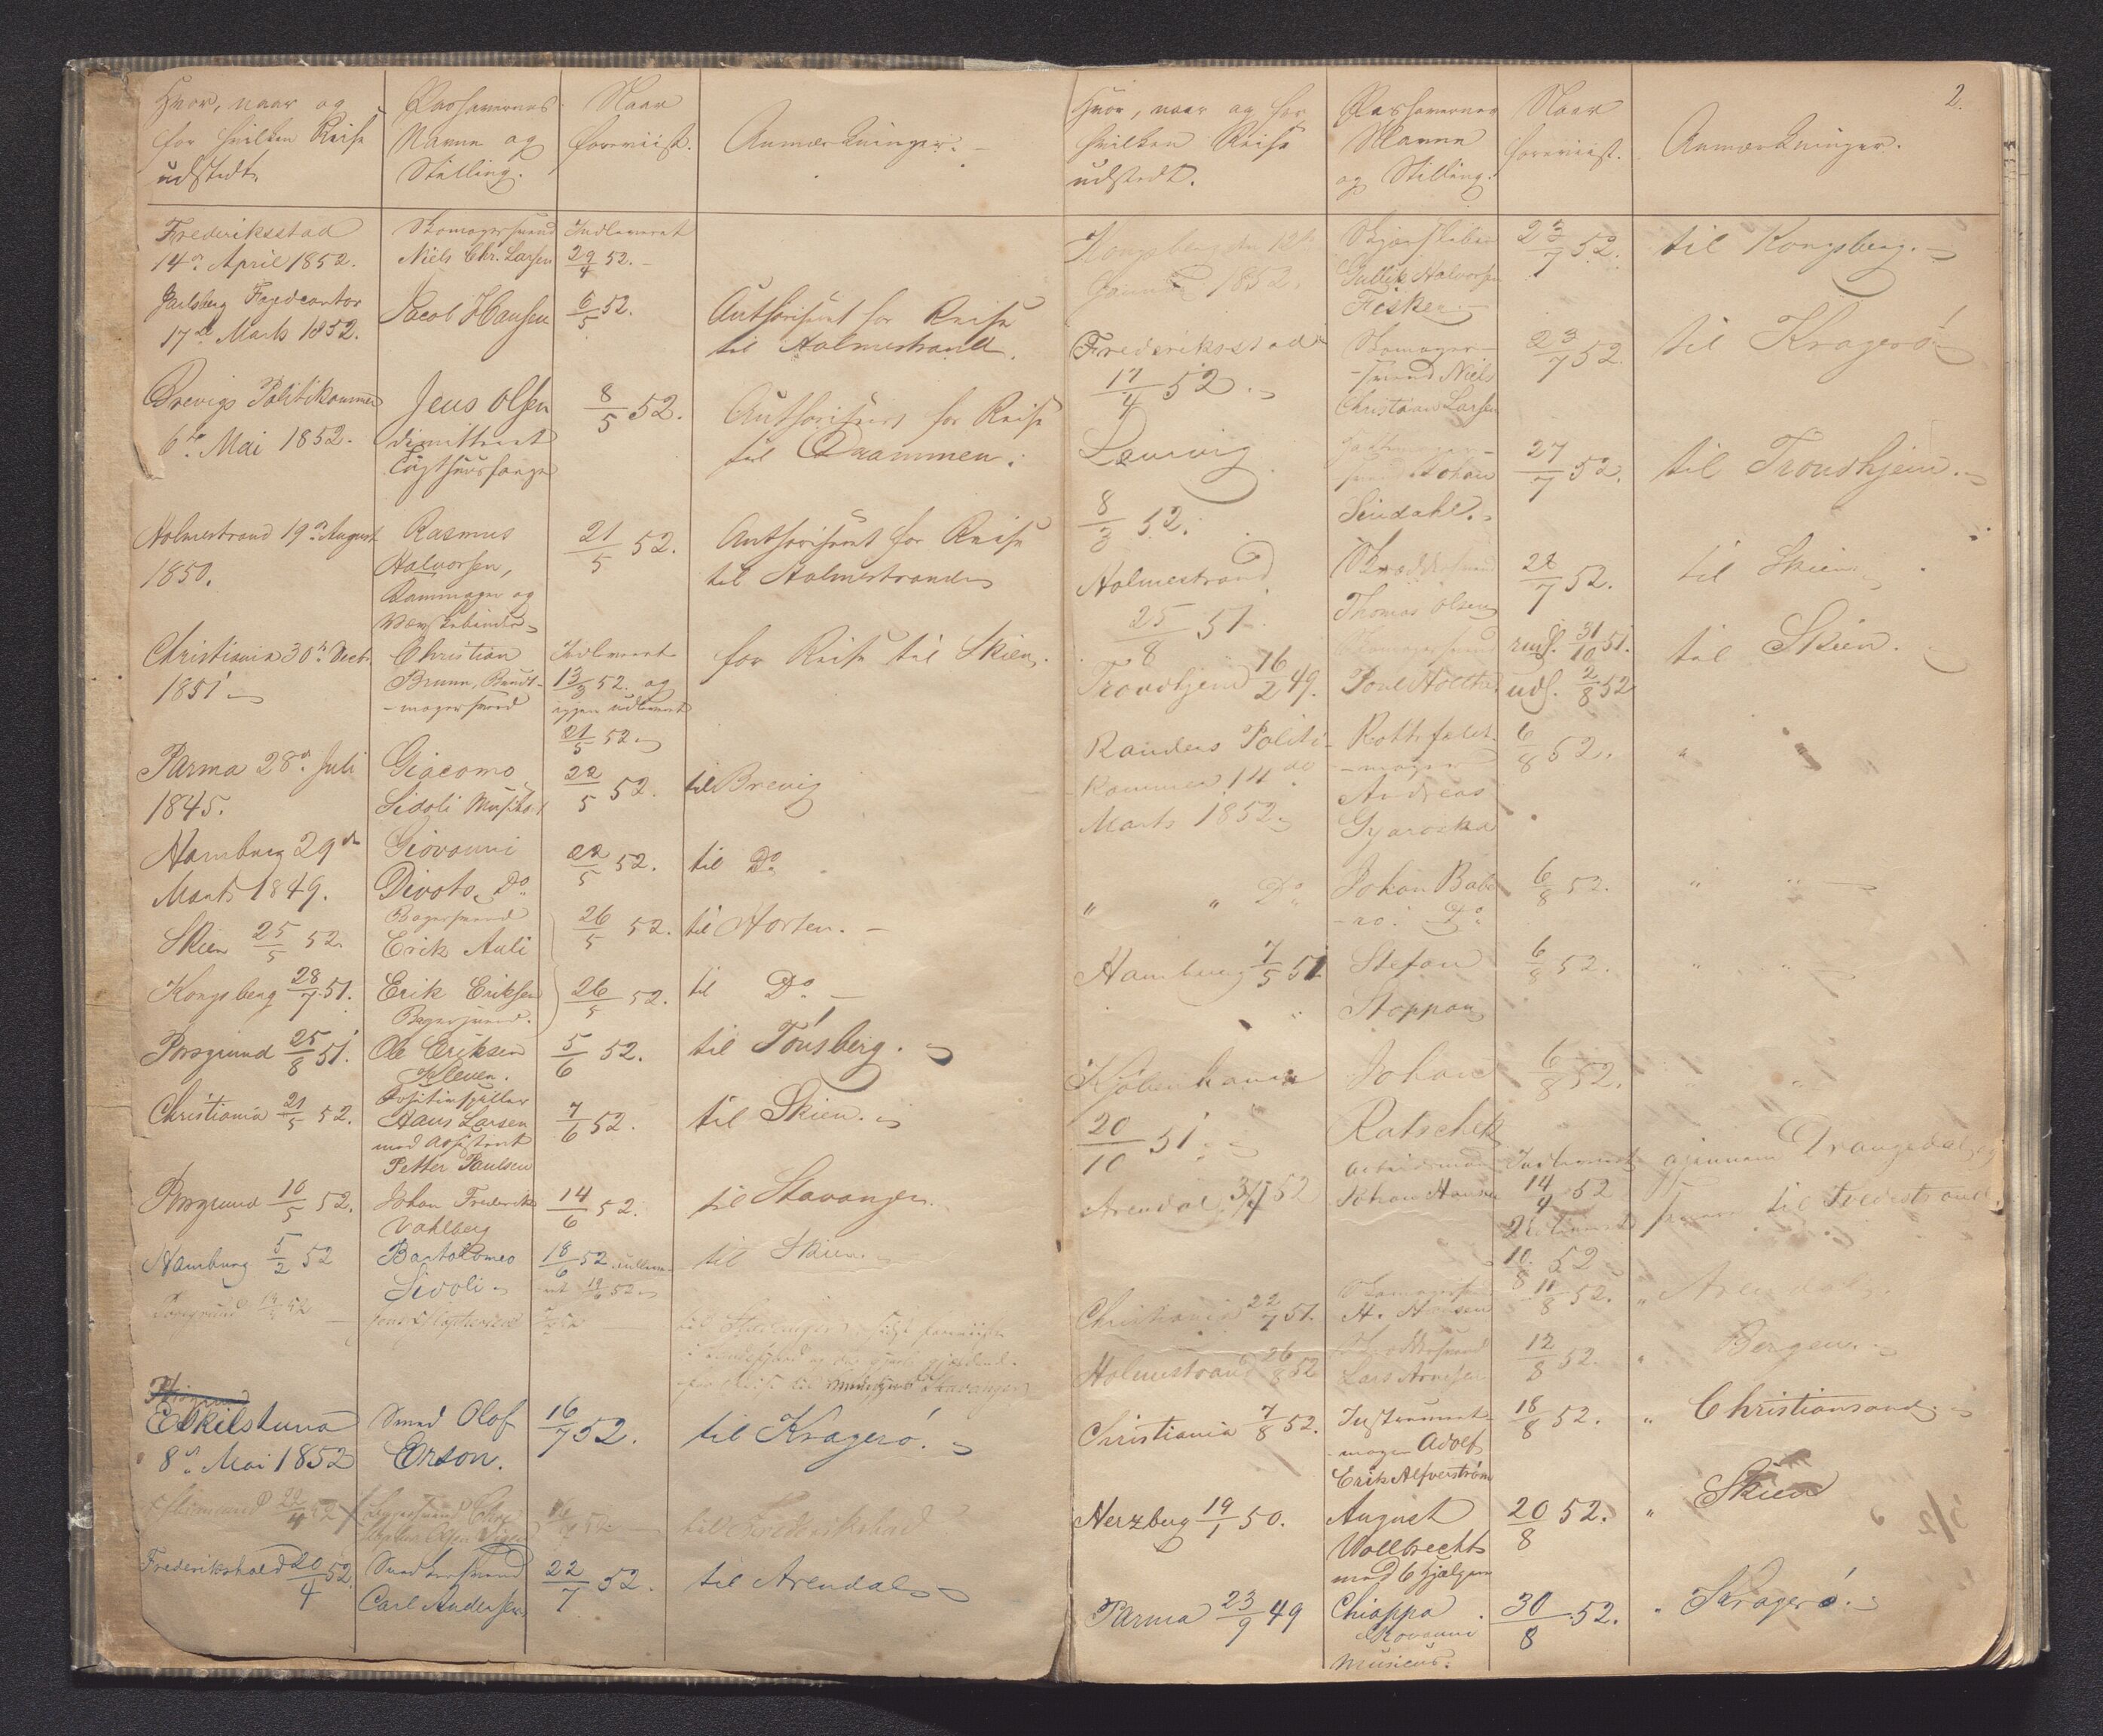 Hvor, naar og
for hvilken Reise
udstedt.
Passhavernes
Navne og
Stilling.
Naar
foreviist.
Anmærkninger.
Frederiksstad
14de April 1852.
Skomagersvend
Niels Chr. Larsen
Indleveret
29/4 52.
Jarlsberg Fogedcontor
17de Marts 1852.
Jacob Hansen
6/5 52.
Authoriseret for Reise
til Holmestrand.
Brevigs Politikammer
6te Mai 1852.
Jens Olsen
dimitteret
Tugthuusfange
8/5 52.
Authoriseret for Reise
til Drammen.
Holmestrand 19de August
1850.
Rasmus
Halvorsen,
og
21/5 52.
Authoriseret for Reise
til Holmestrand
Christiania 30te Decbr
1851
Christian
Brunn, Bundt-
magersvend
Indleveret
13/3 52. og
igjen udleveret
21/5 52.
for Reise til Skien.
Parma 28de Juli
1845.
Giacomo
Sidoli Musikus
22/5 52.
til Brevig
Hamburg 29de
Marts 1849.
Giovanni
Divoto Do
22/5 52.
til Do
Skien 25/5 52.
Bagersvend
Erik Auli
26/5 52.
til Horten.
Kongsberg 28/7 51.
Erik Eriksen
Bagersvend.
26/5 52.
til Do
Porsgrund 25/8 51.
Ole Eriksen
Kleven.
5/6 52.
til Tönsberg.
Christiania 21/5 52.
Positivspiller
Hans Larsen
med Assistent
Petter Paulsen
7/6 52.
til Skien.
Porsgrund 10/5 52.
Johan Frederik
Vahlberg
14/6 52.
til Stavanger.
Hamburg 5/2 52
Bartolomeo
Sidoli
18/6 52
til Skien
Porsgrund
til Stavanger
Stavanger
Eskilstuna
8de Mai 1852
Smed Olof
Erson.
16/7 52.
til Kragerö.
22/4 52
til Frederikstad
Frederikshald 20/4 52.
Carl Andersen
22/7 52.
til Arendal
2.
Hvor, naar og for
hvilken Reise
udstedt.
Passhavernes
Navne
og Stilling.
Naar
foreviist.
Anmærkninger.
Kongsberg den 12te
Januar 1852.
Gullik Halvorsen
Fiske
23/7 52.
til Kongsberg.
Frederiksstad
17/4 52.
Skomager-
svend Niels
Christian Larsen
23/7 52.
til Kragerö
Laurvig
8/3 52.
Johan
Lindahl.
27/7 52.
til Trondhjem.
Holmestrand
25/8 51.
Skræddersvend
Thomas Olsen
28/7 52.
til Skien
Trondhjem 16/2 49.
Skomagersvend
31/10 51.
uds. 2/8 52
til Skien.
Randers Politi-
kammer 14de
Marts 1852
Rottefælde-
mager
Andreas
Gyaroska
6/8 52.
" "
" " Do
Johan Babe
no. Do
6/8 52.
" "
Hamburg 7/5 51
Stefan
Stoppan
6/8 52.
" "
Kjöbenhavn
20/10 51.
Johan
Ratschek
6/8 52.
" "
Arendal 3/4 52
Arbeidsmand
Johan Hansen
Indleveret
14/4 52
Udleveret
10/8 52
gjennem Drangedal
til Tvedestrand.
Christiania 22/7 51.
Skomagersvend
H. Hansen
11/8 52.
" Arendal.
Holmestrand 26/8 52
Skræddersvend
Lars Arnesen
12/8 52.
" Bergen.
Christiania 7/8 52.
Instrument-
mager Adolf
Erik Alfverström
18/8 52.
" Christiansand
Herzberg 19/1 50.
August
Wollbrecht
med 6 Hjælpere
20/8 52.
" Skien
Parma 23/9 49
Chiappa
Giovanni
Musicus.
30/8 52.
" Kragerö.